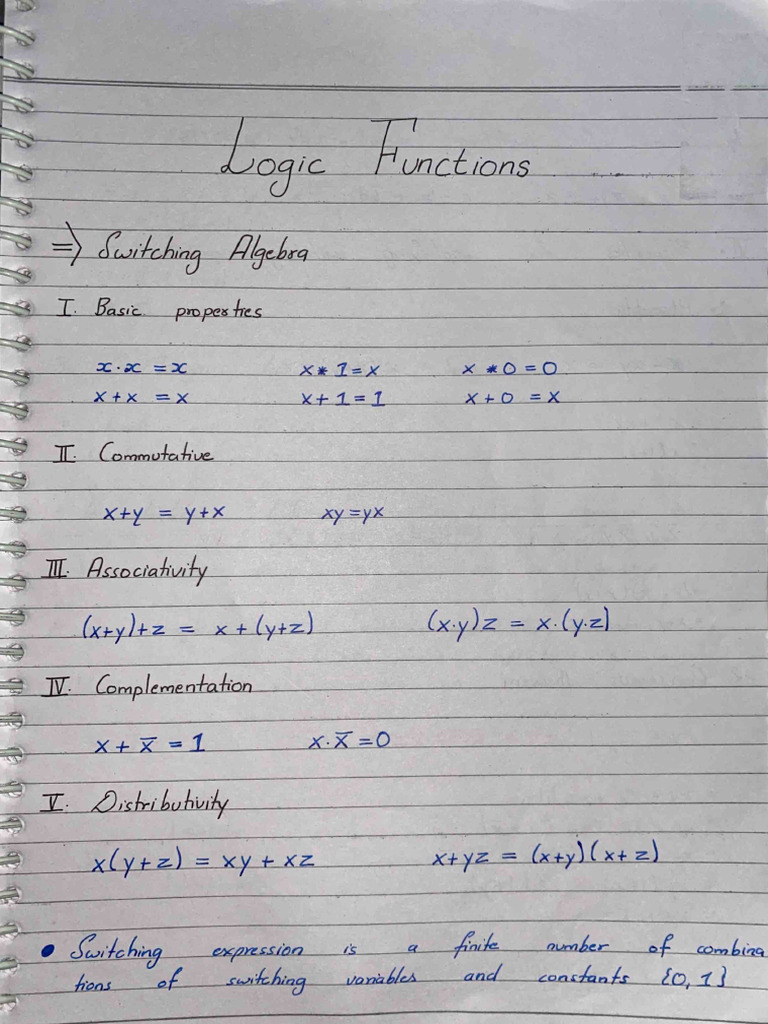 Logic Functions
⇒ Switching Algebra
I. Basic properties
x·x = x x*1=x x*0=0
x+x = x x+1=1 x+0 =x
II. Commutative
x+y = y+x xy=yx
III. Associativity
(x+y)+z = x+(y+z) (x·y)z = x.(y·z)
IV. Complementation
x + x̅ = 1 x·x̅ =0
V. Distributivity
x(y+z) = xy + xz x+yz = (x+y)(x+z)
• Switching expression is a finite number of combina
tions of switching variables and constants {0,1}